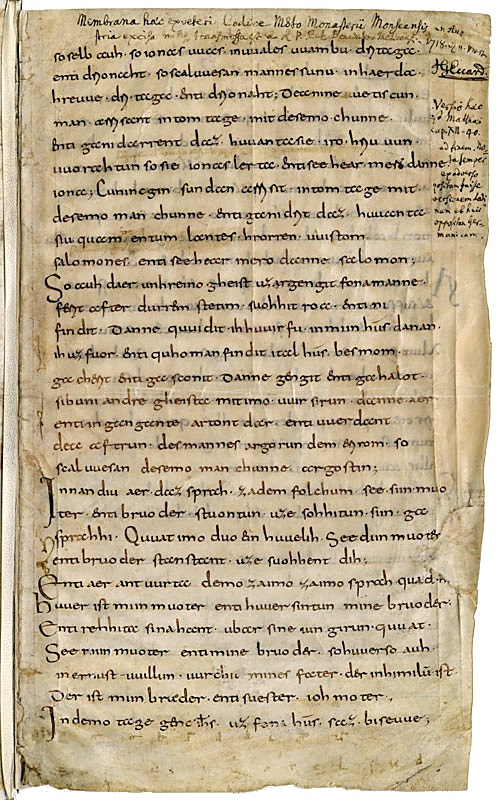 Membrana haec ex veteri Codice MSto Monasterii Monseensis in Aus
tria excisa mihi transmissa est a R. P.
1718.
JGEccard.
Versio haec
est Matthaei
cap. XII. 40.
ad finem.
so selb auh · so ionas uuas · in uuales uuambu · dri taga ·
enti drio naht · so scal uuesan mannes sunu · in haerda
hreuue · dri taga · enti drio naht; Dea nineuetiscun ·
man · arrisant in tomtage · mit desemo chunne ·
enti ganidarrent · daz · huuanta sie · iro · hriuun ·
uuorahtun so sie · ionas lerta · enti see hear mera danne
ionas; Cuningin sundan arrisit · in tomtage mit
desemo manchunne · enti ganidrit daz · huuanta
siu quam · entum lantes · hrorren · uuistom
salomones · enti see hear mero danne salomon;
So auh daer unhreino gheist uz argengit fona manne ·
ferit after durrem stetim · suohhit roa · enti ni
findit · Danne quuidit ih huuirfu · in min hus danan ·
ih uz fuor · enti quhoman findit ital hus · besmom ·
gacherit enti gasconit · Danne gengit enti gahalot ·
sibuni andre gheista mit imo · uuirsirun · danne aer
enti ingangante artont dar · enti uuerdant
dea aftrun · des mannes argorun dem erirom · so
scal uuesan desemo manchunne · argostin;
Innan diu aer · daz sprah · za dem folchum · see · sin muo
ter · enti bruoder · stuontun · uze sohhitun · sin · ga
sprahhi · Quuat imo duo ein huuelih · See din muoter
enti bruoder stantant · uze suohhent dih;
Enti aer antuurta demo za imo sprah quad ·
huuer ist min muoter enti huuer sintun mine bruoder ·
Enti rehhita sina hant · ubar sine iungirun · quuat ·
See min muoter enti mine bruoder · so huuer so auh ·
in ernust uuillun · uurchit mines fater · der in himilu ist ·
Der ist min bruoder · enti suester · ioh moter;
In demo tage genc ihs · uz fona hus · saz · bi seuue;